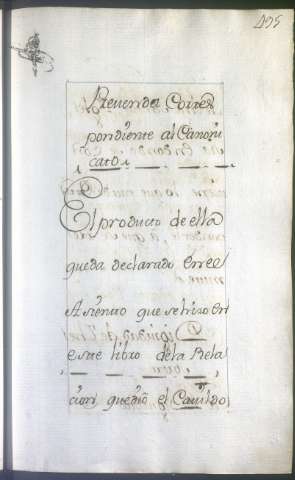 495
Prevenda Corres
pondiente al Canoni
cato
El producto de ella
queda declarado en el
Asiento que se hizo en
este libro de la Rela
cion, que dió el Cavildo